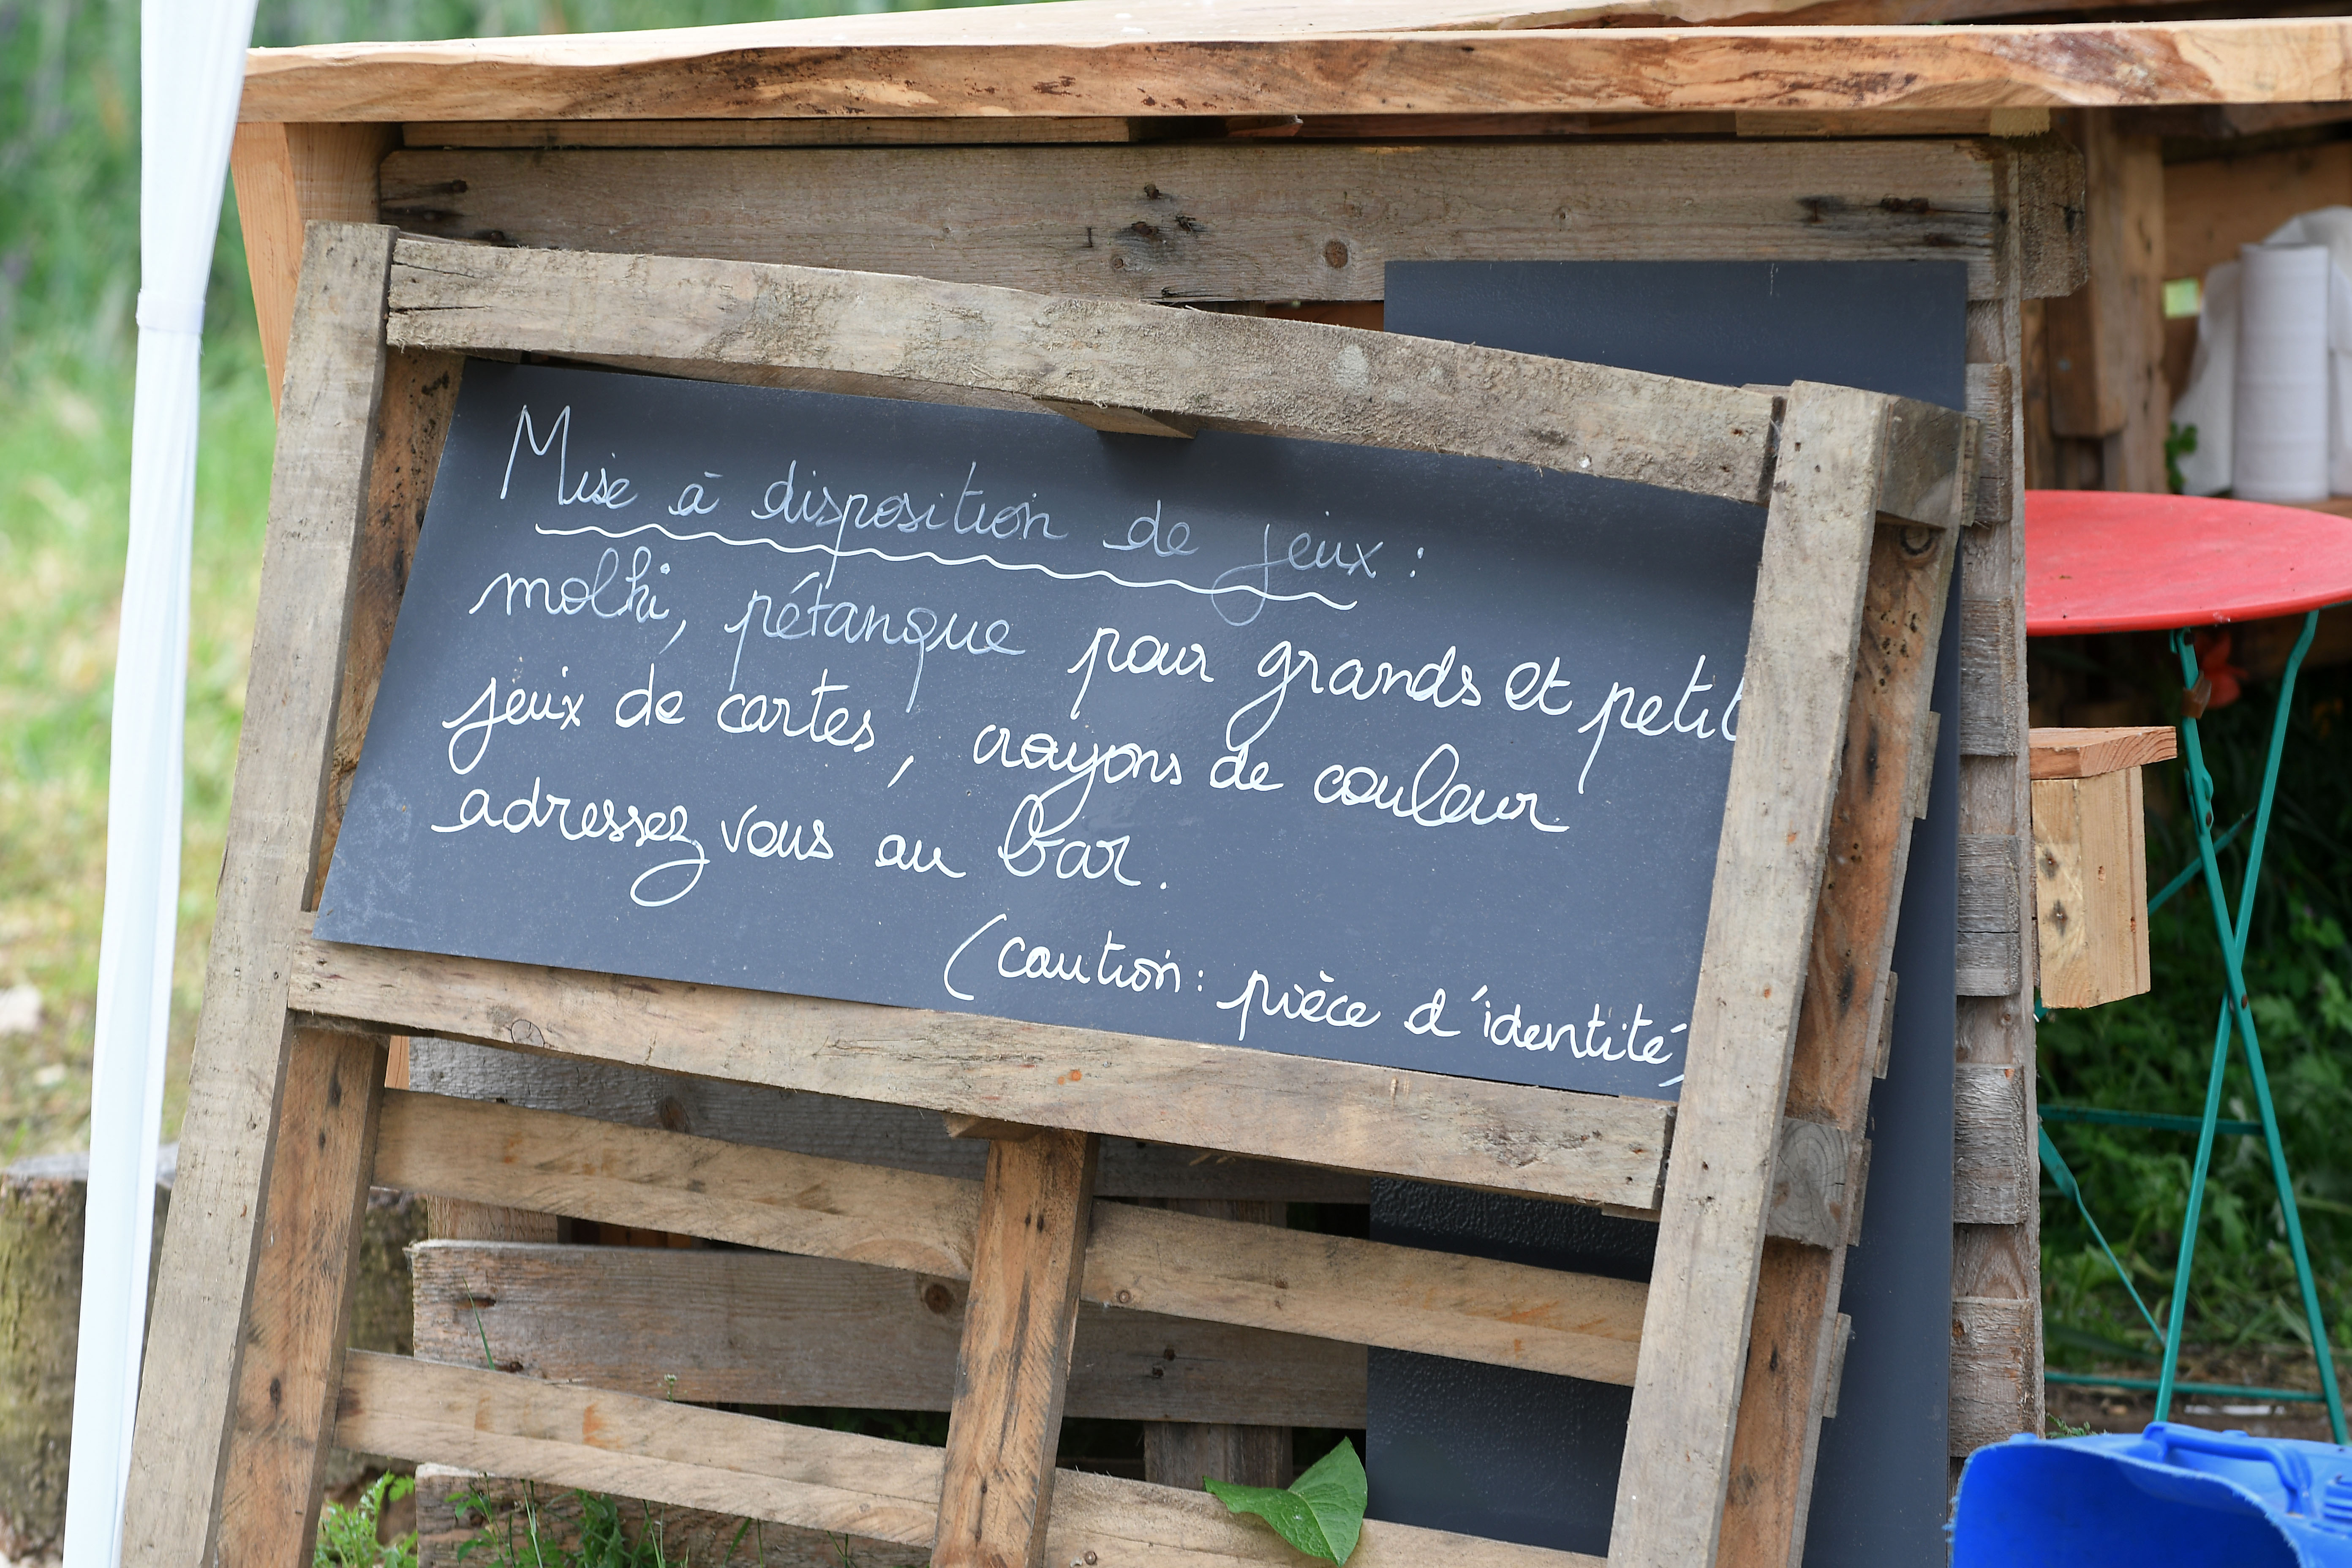 Mise à disposition de jeux :
molki, pétanque pour grands et petit
jeux de cartes, crayons de couleur
adressez vous au bar.
(caution : pièce d'identité)